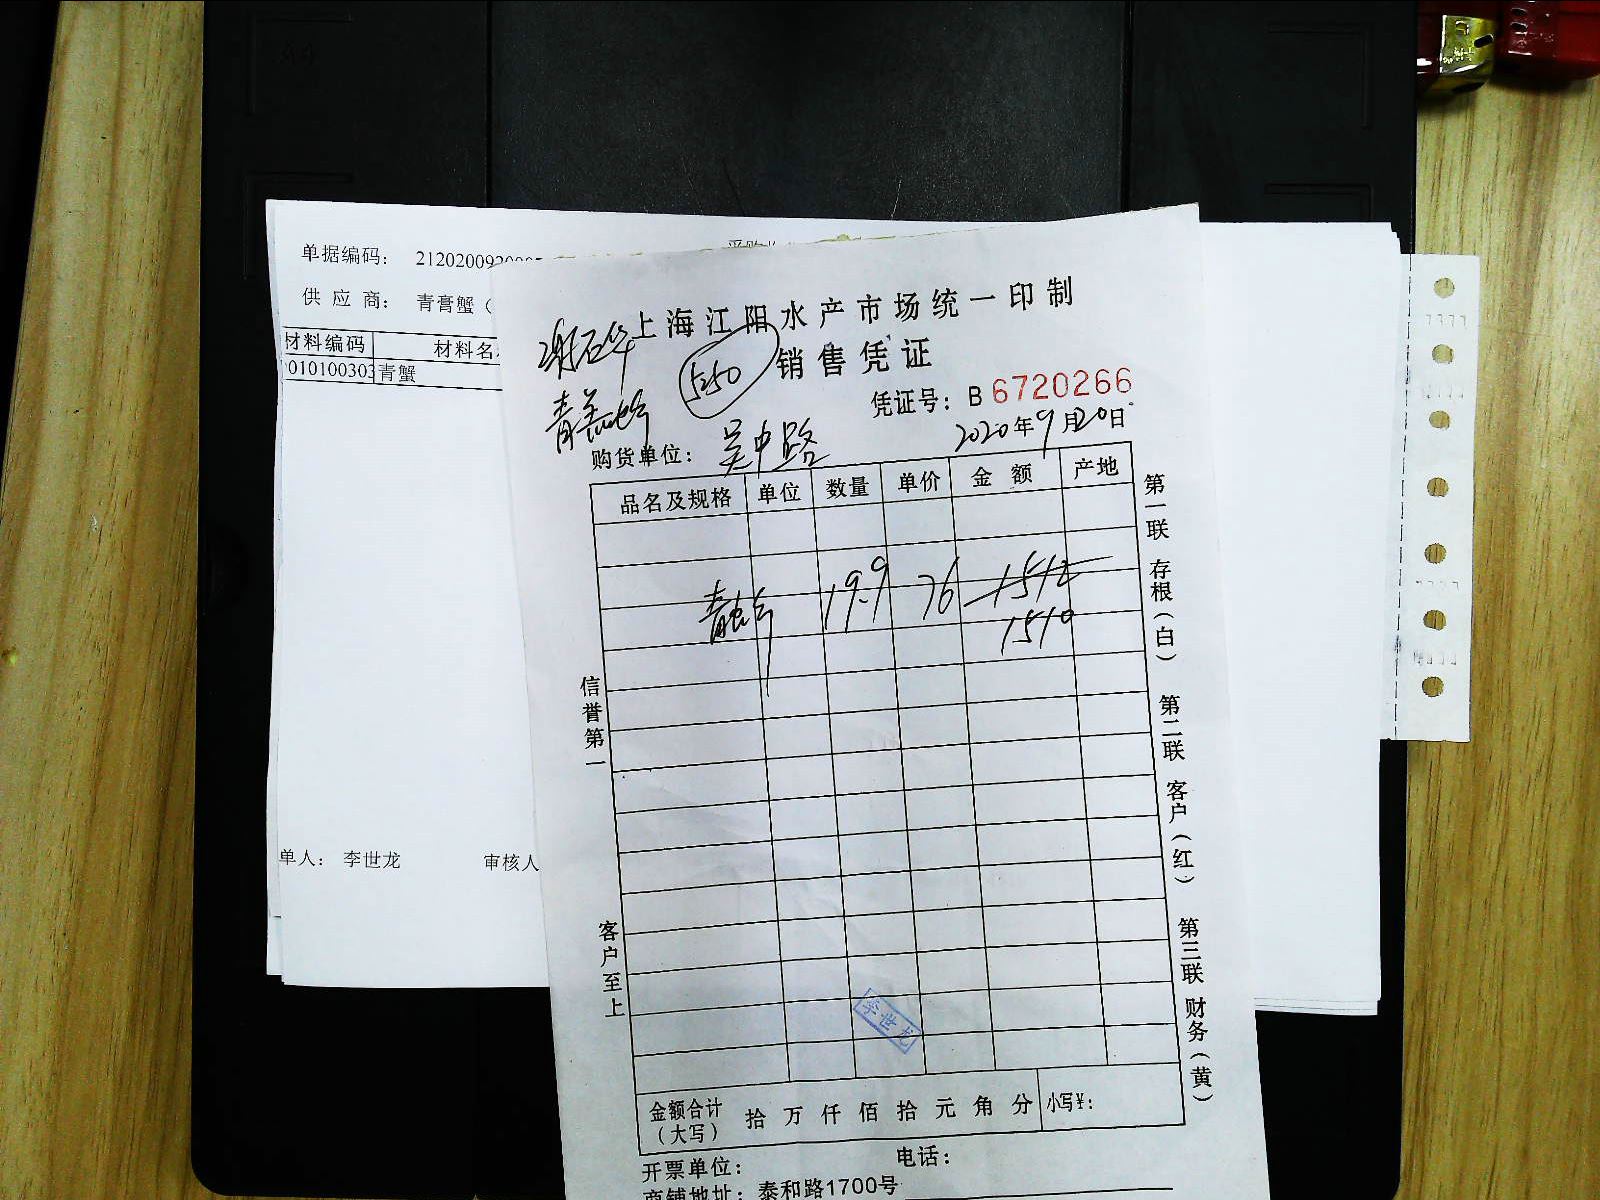 单据编码： 2120200920
供 应 商： 青膏蟹（
材料编码 材料名
010100303 青蟹
单人： 李世龙 审核人
上海江阳水产市场统一印制
550 销售凭证
凭证号：B 6720266
青膏蟹
2020年9月20日
购货单位： 吴中路
品名及规格 单位 数量 单价 金 额 产地
青蟹 19.9 76 1512
1510
第一联 存根（白） 第二联 客户（红） 第三联 财务（黄）
信誉第一 客户至上
李世龙
金额合计（大写） 拾 万 仟 佰 拾 元 角 分 小写¥：
开票单位： 电话：
商铺地址： 泰和路1700号